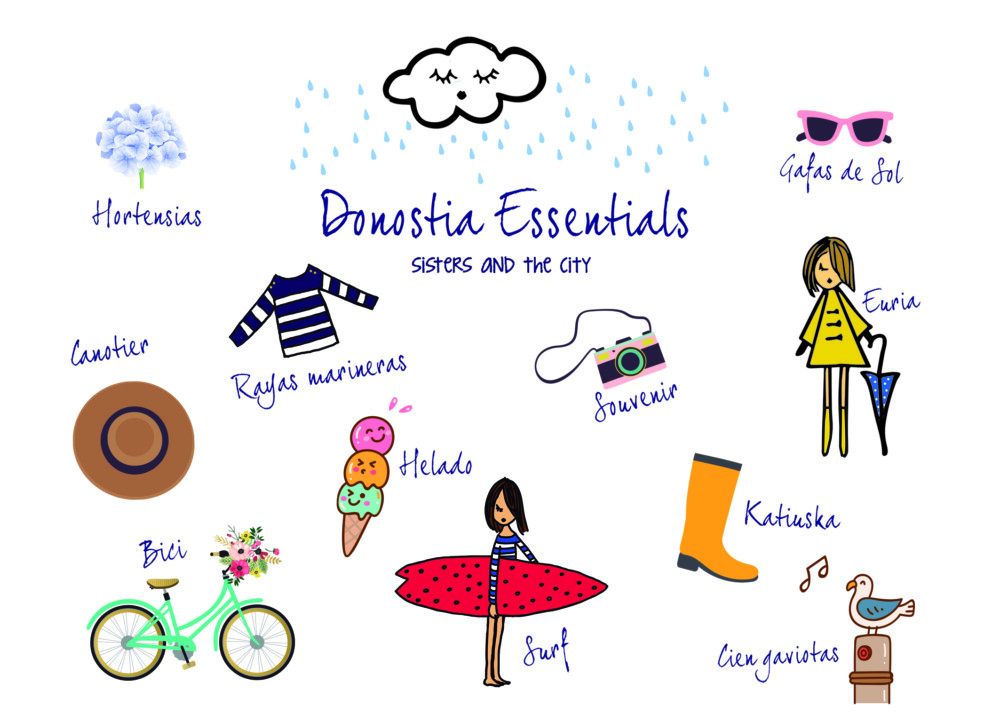 Donostia Essentials
SISTERS AND THE CITY
Hortensias
Gafas de Sol
Euria
Canotier
Rayas marineras
Souvenir
Helado
Katiuska
Bici
Surf
Cien gaviotas